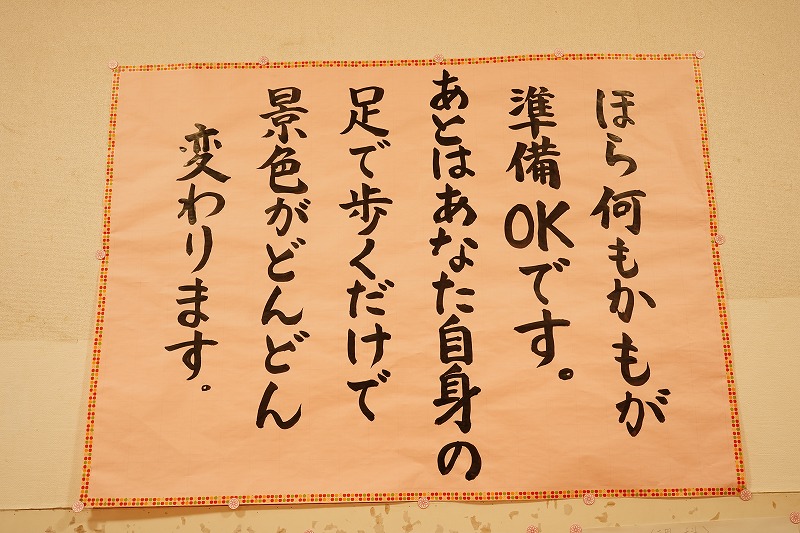 ほら何もかもが
準備OKです。
あとはあなた自身の
足で歩くだけで
景色がどんどん
変わります。